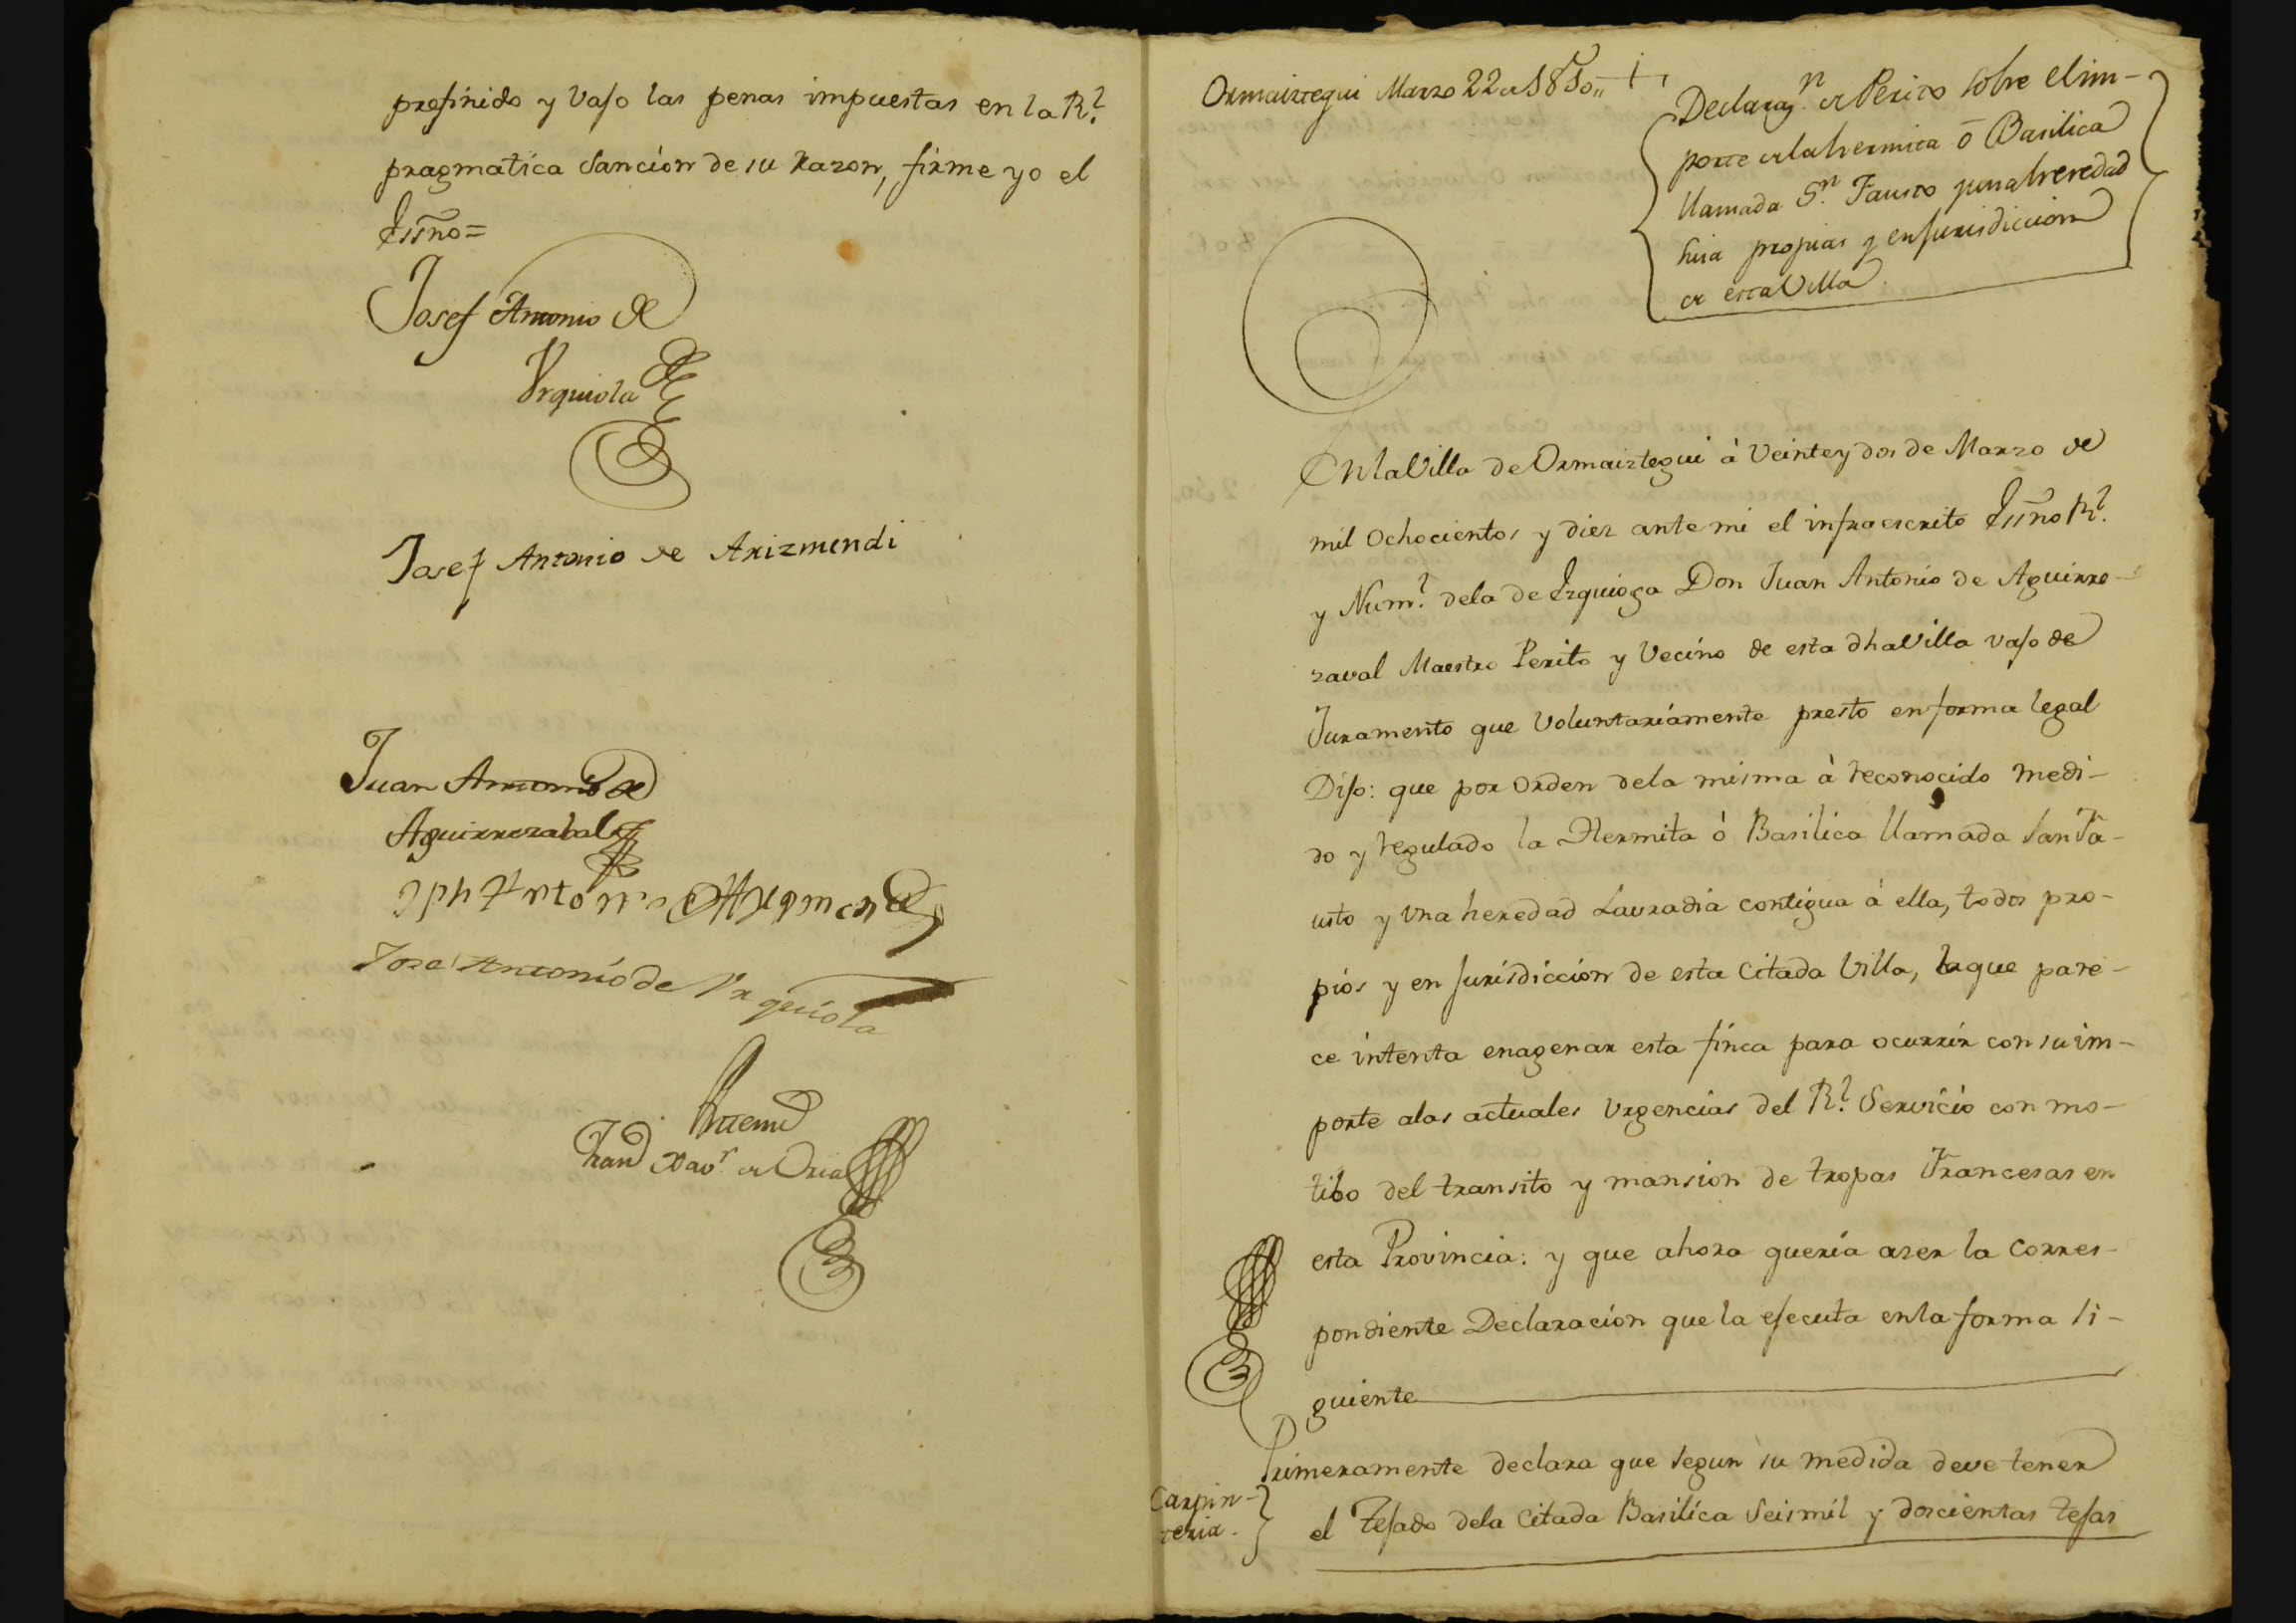 prefinido y vajo las penas impuestas en la Rl.
pragmatica Sanción de su razon, firme yo el
Essño=
Josef Antonio de
Vrquiola
Josef Antonio de Arizmendi
Juan Antonio de
Aguirrezabal
Jph Antonio de Arizmendi
José Antonio de Vrquiola
Antemi
Franco Xavr. de Oria
Ormaiztegui Marzo 22 de 1810,,
Declarazn. de Perito sobre el im-
porte de la hermita ó Basilica
llamada Sn. Fausto y una heredad
suia propias y en jurisdiccion
de esta Villa.
En la Villa de Ormaiztegui à veinte y dos de Marzo de
mil ochocientos y diez ante mi el infraescrito Essño Rl.
y Numl. dela de Ezquioga Don Juan Antonio de Aguirre-
zaval Maestro Perito y Vecino de esta dha Villa vajo de
Juramento que voluntariamente presto en forma legal
Dijo: que por orden dela misma à reconocido medi-
do y regulado la Hermita ó Basilica llamada San Fa-
usto y vna heredad Lavradia contigua à ella, todos pro-
pios y en jurisdiccion de esta citada Villa, la que pare-
ce intenta enagenar esta finca para ocurrir con su im-
porte alas actuales vrgencias del Rl. Servicio con mo-
tibo del transito y mansion de tropas Francesas en
esta Provincia: y que ahora quería azer la corres-
pondiente Declaracion que la ejecuta enla forma si-
guiente
Primeramente declara que segun su medida deve tener
Carpin-
teria.
el Tejado dela citada Basilica Seis mil y doscientas tejas